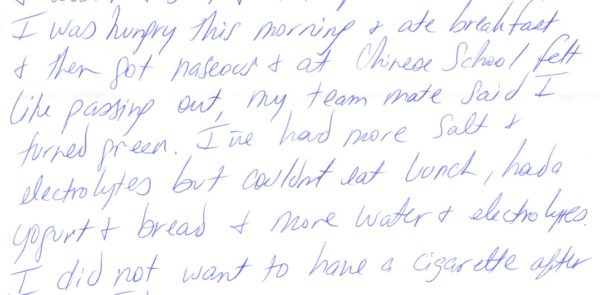 I was hungry this morning & ate breakfast
& then got naseous & at Chinese School felt
like passing out, my team mate said I
turned green. I've had more salt &
electrolytes but couldnt eat lunch, had a
yogurt & bread & more water & electrolytes.
I did not want to have a cigarette after